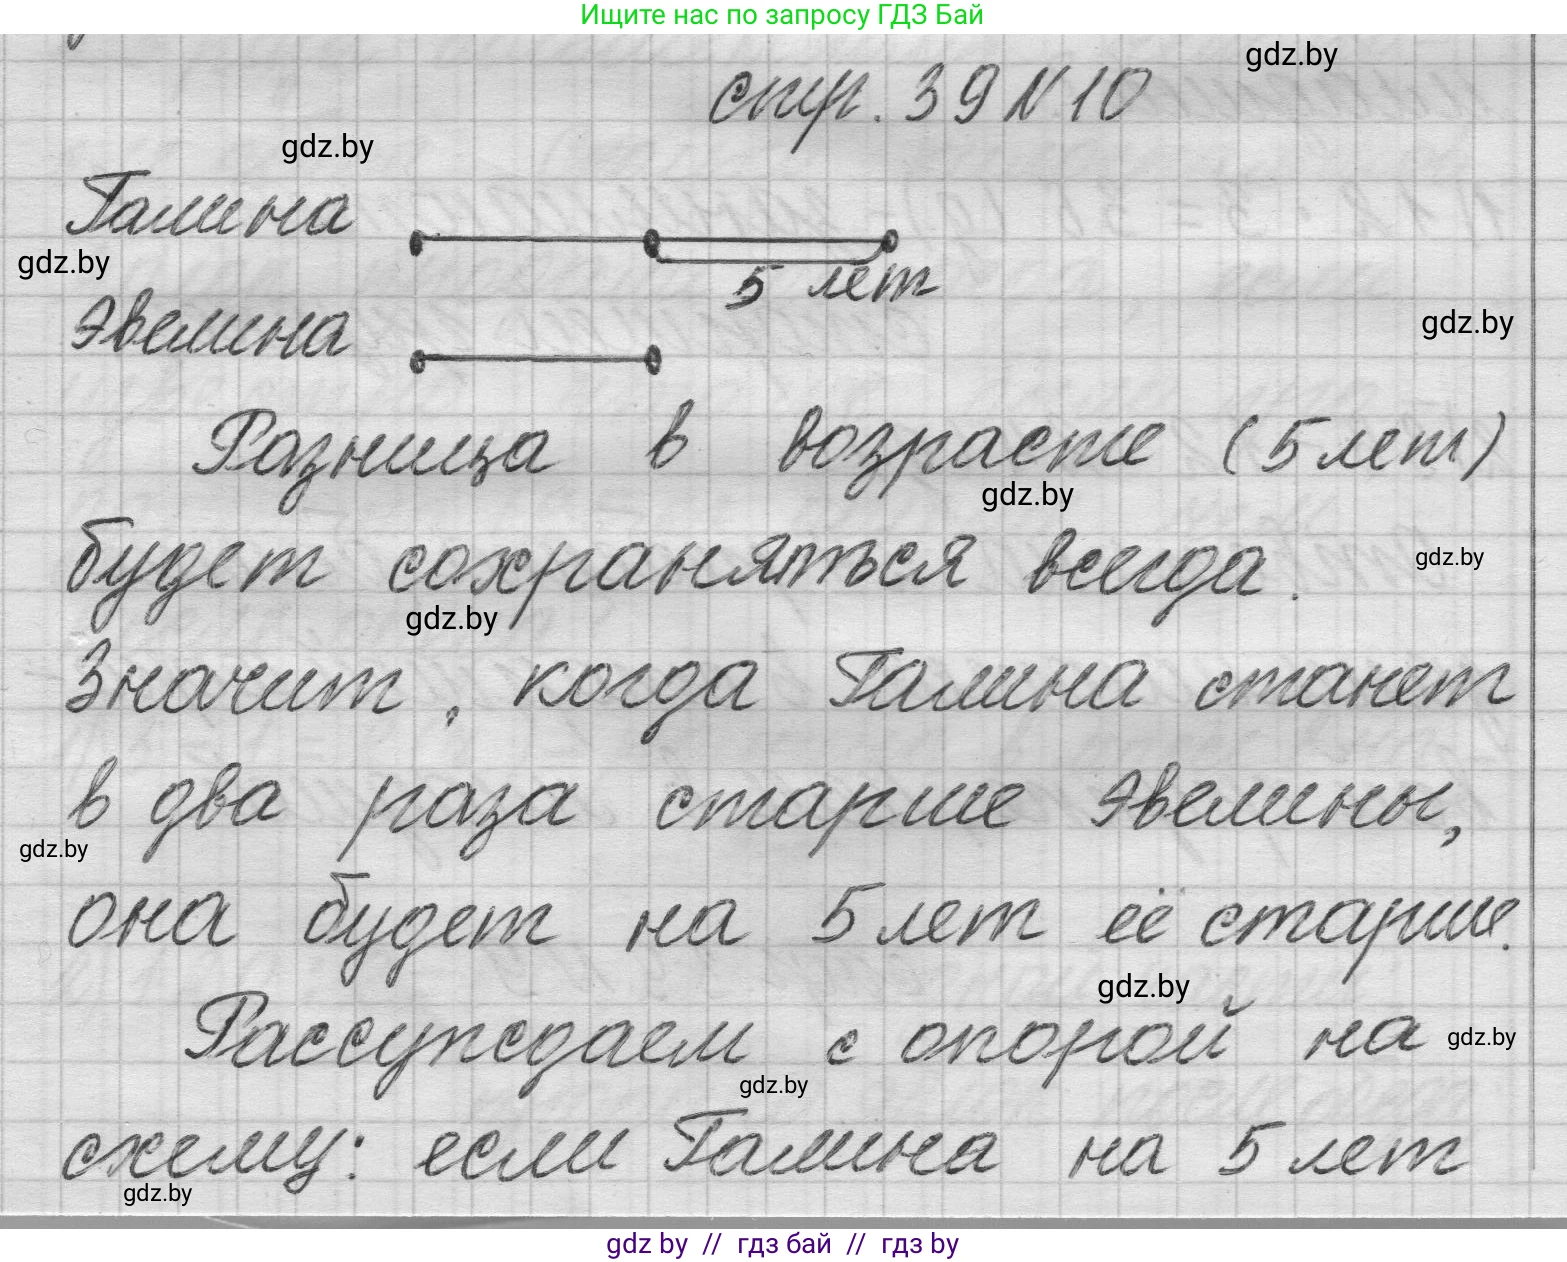 Ищите нас по запросу ГДЗ Бай
gdz.by
стр. 39 N 10
gdz.by
Галина
gdz.by
5 лет
Эвелина
gdz.by
Разница в возрасте (5 лет)
gdz.by
будет сохраняться всегда.
gdz.by
gdz.by
Значит, когда Галина станет
в два раза старше Эвелины,
gdz.by
она будет на 5 лет её старше.
gdz.by
Рассуждаем с опорой на
gdz.by
gdz.by
схему: если Галина на 5 лет
gdz.by
gdz by // гдз бай // гдз by